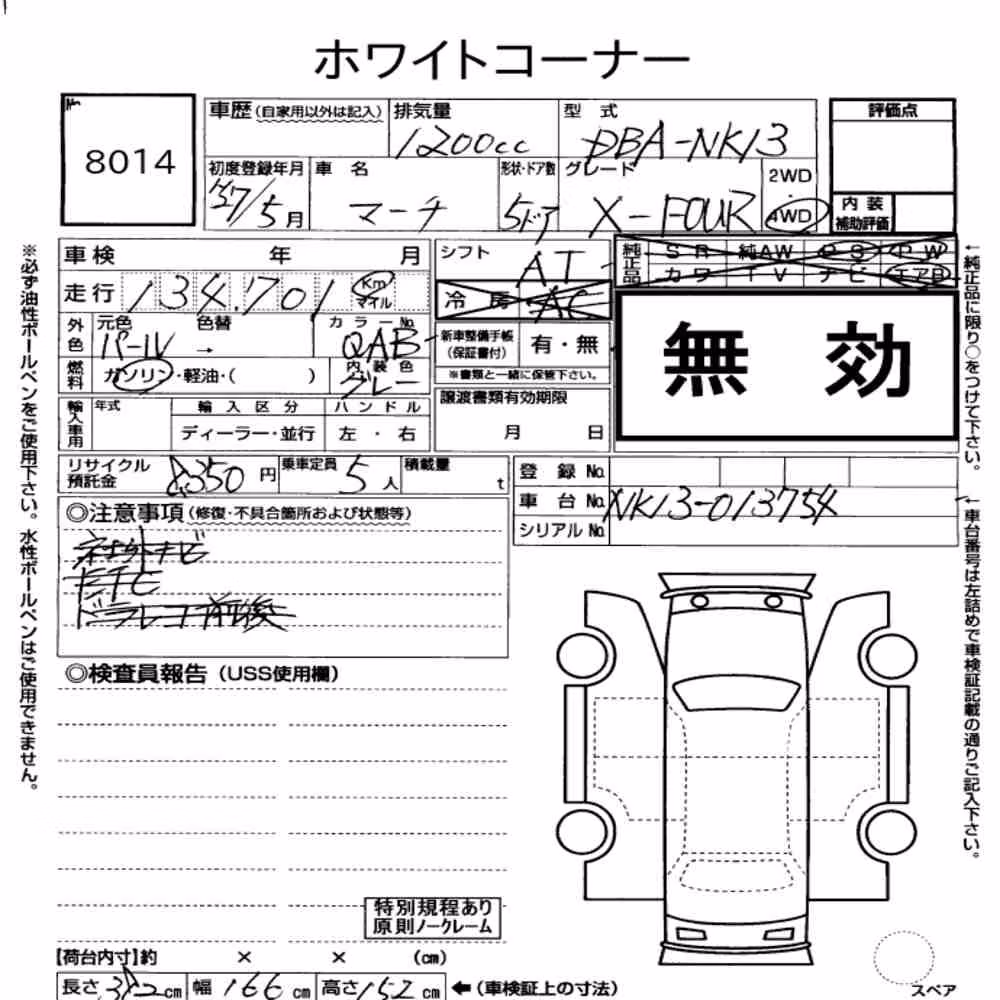 ホワイトコーナー
No.
8014
車歴(自家用以外は記入) 排気量 型式 評価点
1200cc DBA-NK13
初度登録年月 車名 形状・ドア数 グレード 2WD ・ 4WD 内装補助評価
H27/5月 マーチ 5ドア X-FOUR
車検 年 月 シフト AT 純正品 SR 純AW PS PW
カワ TV ナビ エアB
走行 134.701 Km マイル 冷房 AC
無効
外色 元色 色替 カラーNo. 新車整備手帳(保証書付) 有・無
パール → QAB
※書類と一緒に保管下さい。
燃料 ガソリン・軽油・( ) 内装色 グレー
輸入車用 年式 輸入区分 ハンドル 譲渡書類有効期限
ディーラー・並行 左・右 月 日
リサイクル預託金 8350円 乗車定員 5人 積載量 t 登録No.
車台No. NK13-013754
シリアルNo.
◎注意事項(修復・不具合箇所および状態等)
ネオットナビ
ETC
ドラレコ前後
◎検査員報告(USS使用欄)
特別規程あり
原則ノークレーム
【荷台内寸】約 × × (cm)
長さ382cm 幅166cm 高さ152cm ←(車検証上の寸法)
スペア
※必ず油性ボールペンをご使用下さい。水性ボールペンはご使用できません。
←純正品に限り○をつけて下さい。
←車台番号は左詰めで車検証記載の通りご記入下さい。